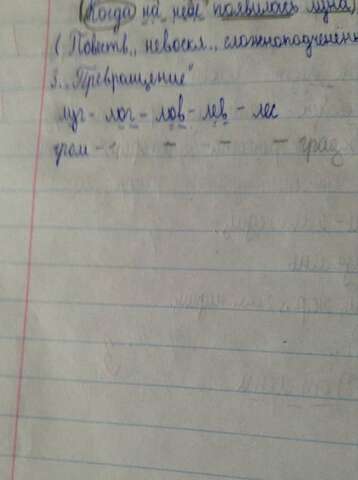 (Когда) на небе появилась луна)
(Повеств., невоскл., сложноподчинённ
3. „Превращение"
луг - лог - лов - лев - лес
гром - - - - град